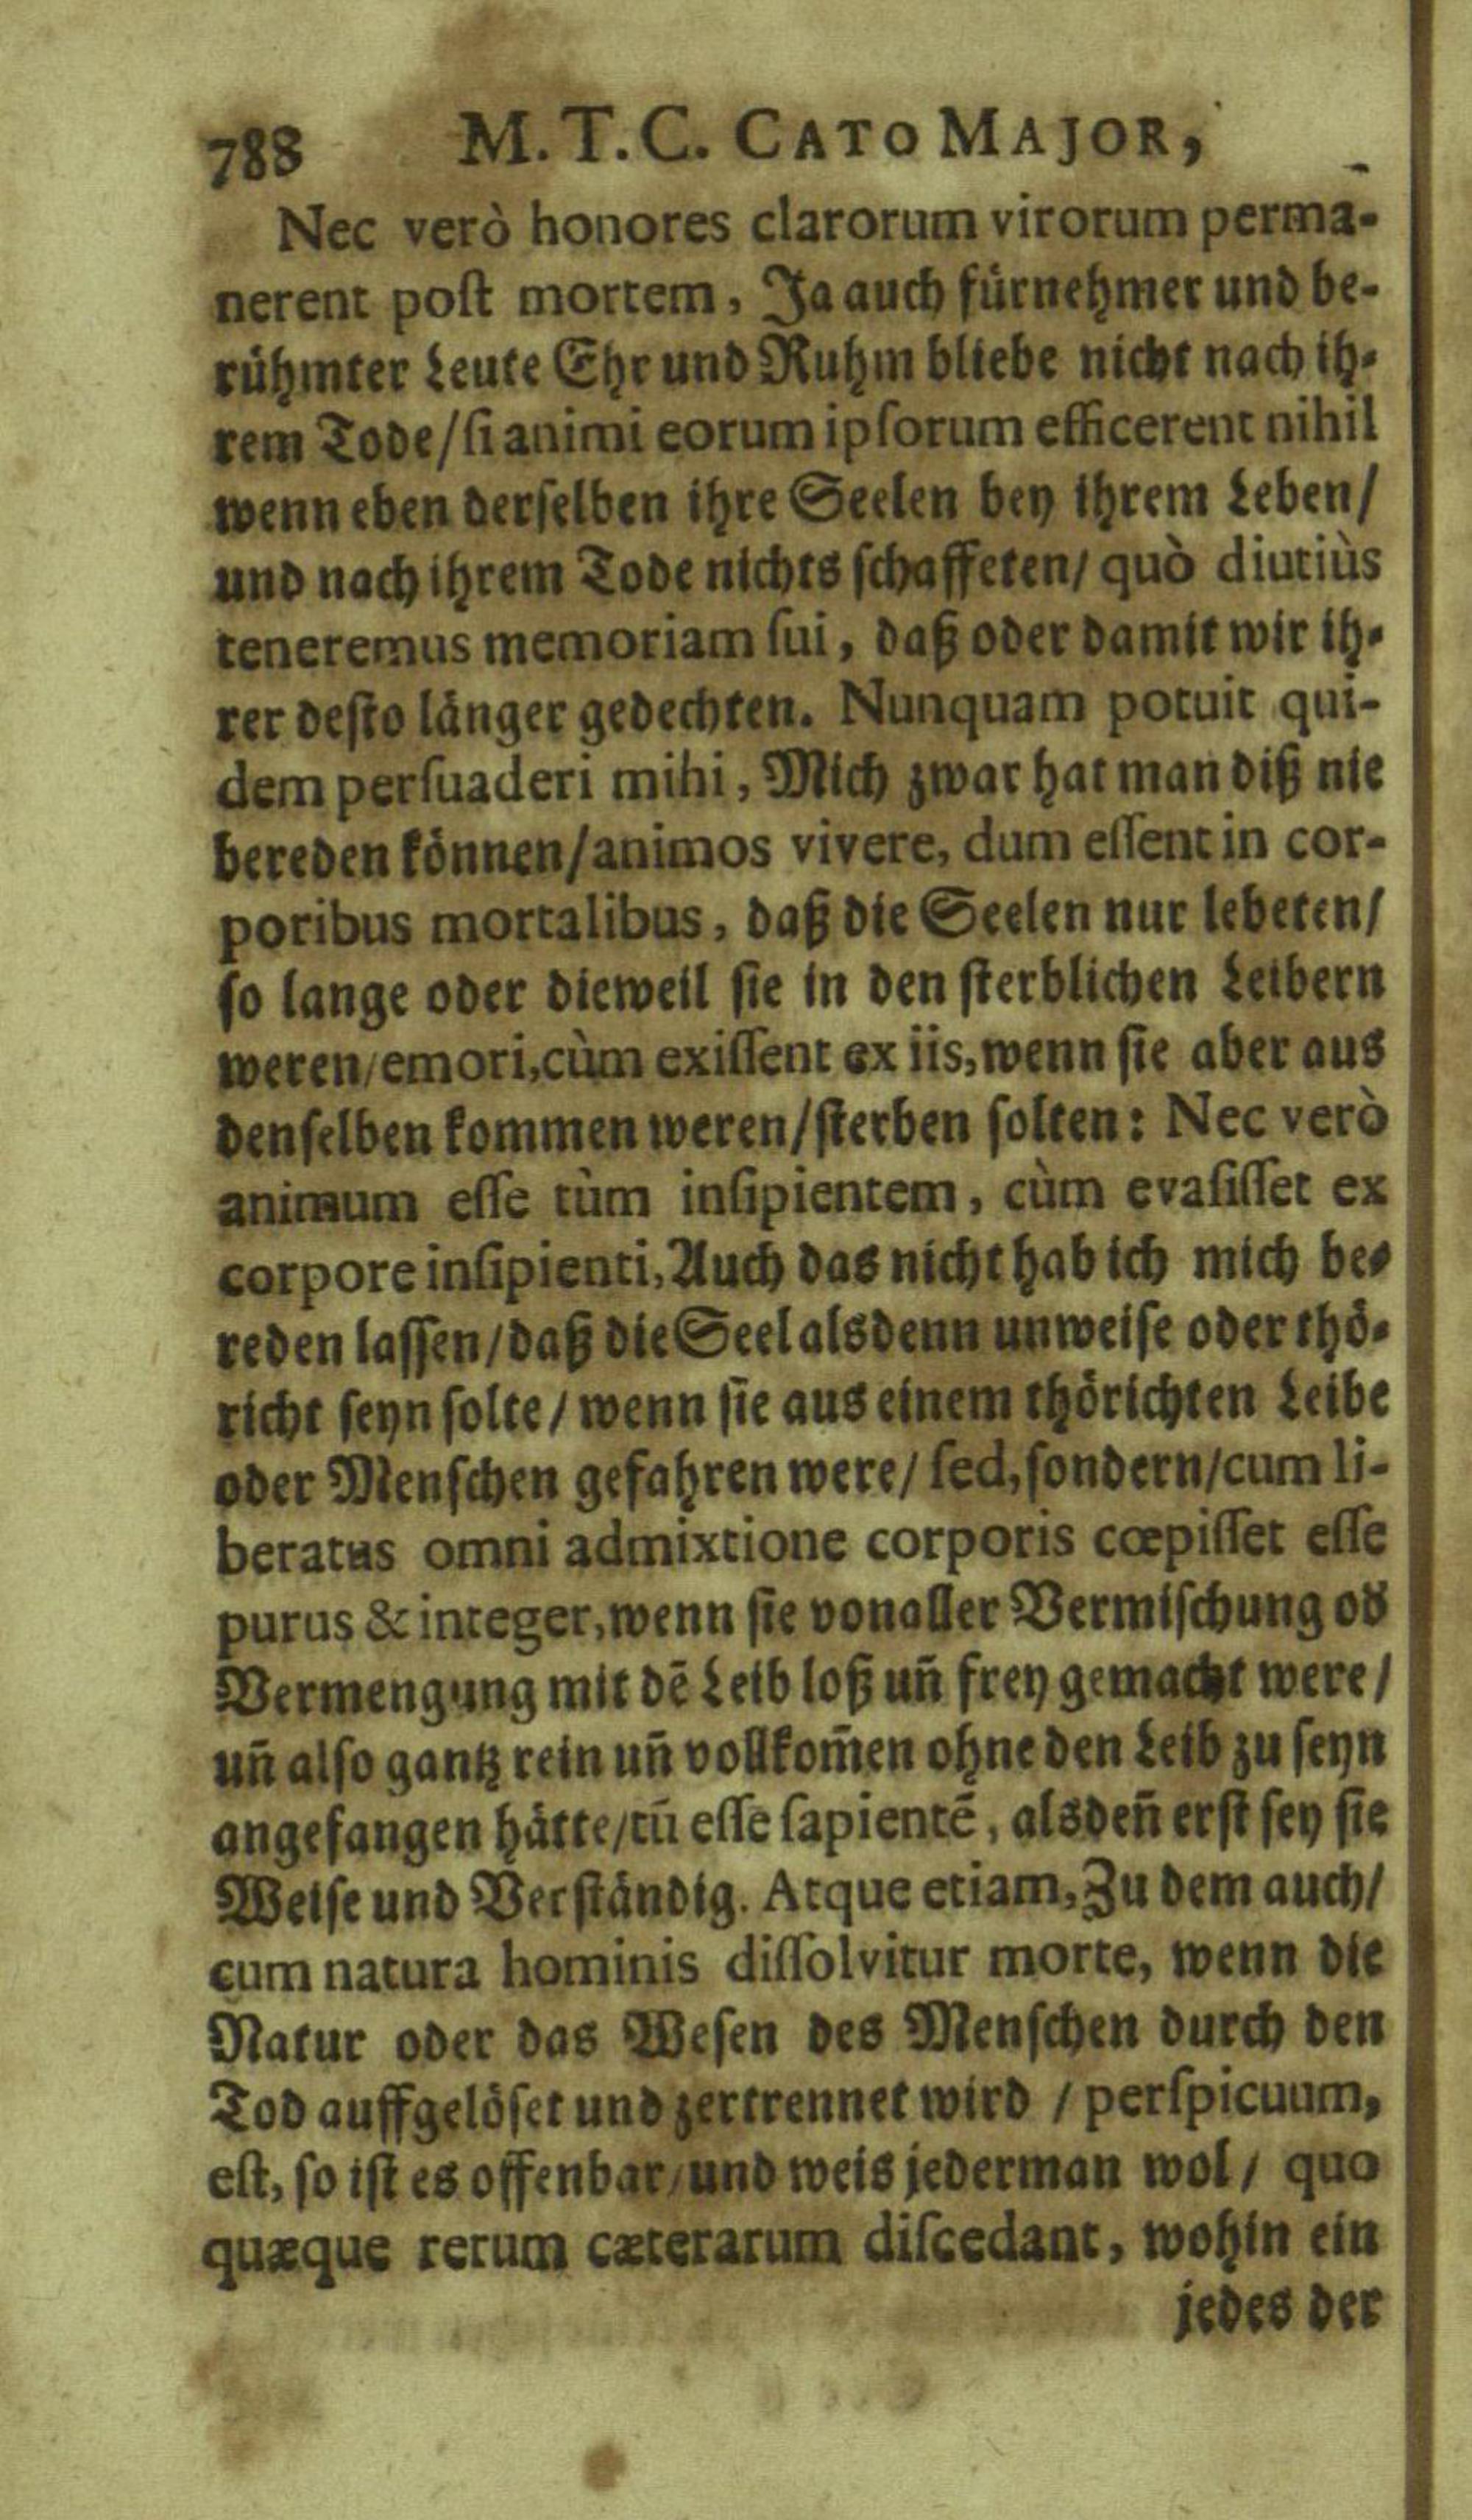 788 M. T. C. CATO MAJOR,
Nec verò honores clarorum virorum perma-
nerent poſt mortem, Ja auch fürnehmer und be-
rühmter Leute Ehr und Ruhm bliebe nicht nach ih-
rem Tode/ſi animi eorum ipſorum efficerent nihil
wenn eben derſelben ihre Seelen bey ihrem Leben/
und nach ihrem Tode nichts ſchaffeten/ quò diutiùs
teneremus memoriam ſui, daß oder damit wir ih-
rer deſto länger gedechten. Nunquam potuit qui-
dem perſuaderi mihi, Mich zwar hat man diß nie
bereden können/animos vivere, dum eſſent in cor-
poribus mortalibus, daß die Seelen nur lebeten/
ſo lange oder dieweil ſie in den ſterblichen Leibern
weren/emori,cùm exiſſent ex iis,wenn ſie aber aus
denſelben kommen weren/ſterben ſolten: Nec verò
animum eſſe tùm inſipientem, cùm evaſiſſet ex
corpore inſipienti,Auch das nicht hab ich mich be-
reden laſſen/daß die Seel alsdenn unweiſe oder thö-
richt ſeyn ſolte/ wenn ſie aus einem thörichten Leibe
oder Menſchen gefahren were/ ſed,ſondern/cum li-
beratus omni admixtione corporis cœpiſſet eſſe
purus & integer,wenn ſie von aller Vermiſchung od
Vermengung mit dē Leib loß uñ frey gemacht were/
uñ alſo gantz rein uñ vollkom̃en ohne den Leib zu ſeyn
angefangen hätte/tū eſſe ſapientē, alsdeñ erſt ſey ſie
Weiſe und Verſtändig. Atque etiam,Zu dem auch/
cum natura hominis diſſolvitur morte, wenn die
Natur oder das Weſen des Menſchen durch den
Tod auffgelöſet und zertrennet wird / perſpicuum,
eſt, ſo iſt es offenbar/und weis jederman wol/ quo
quæque rerum cæterarum diſcedant, wohin ein
jedes der